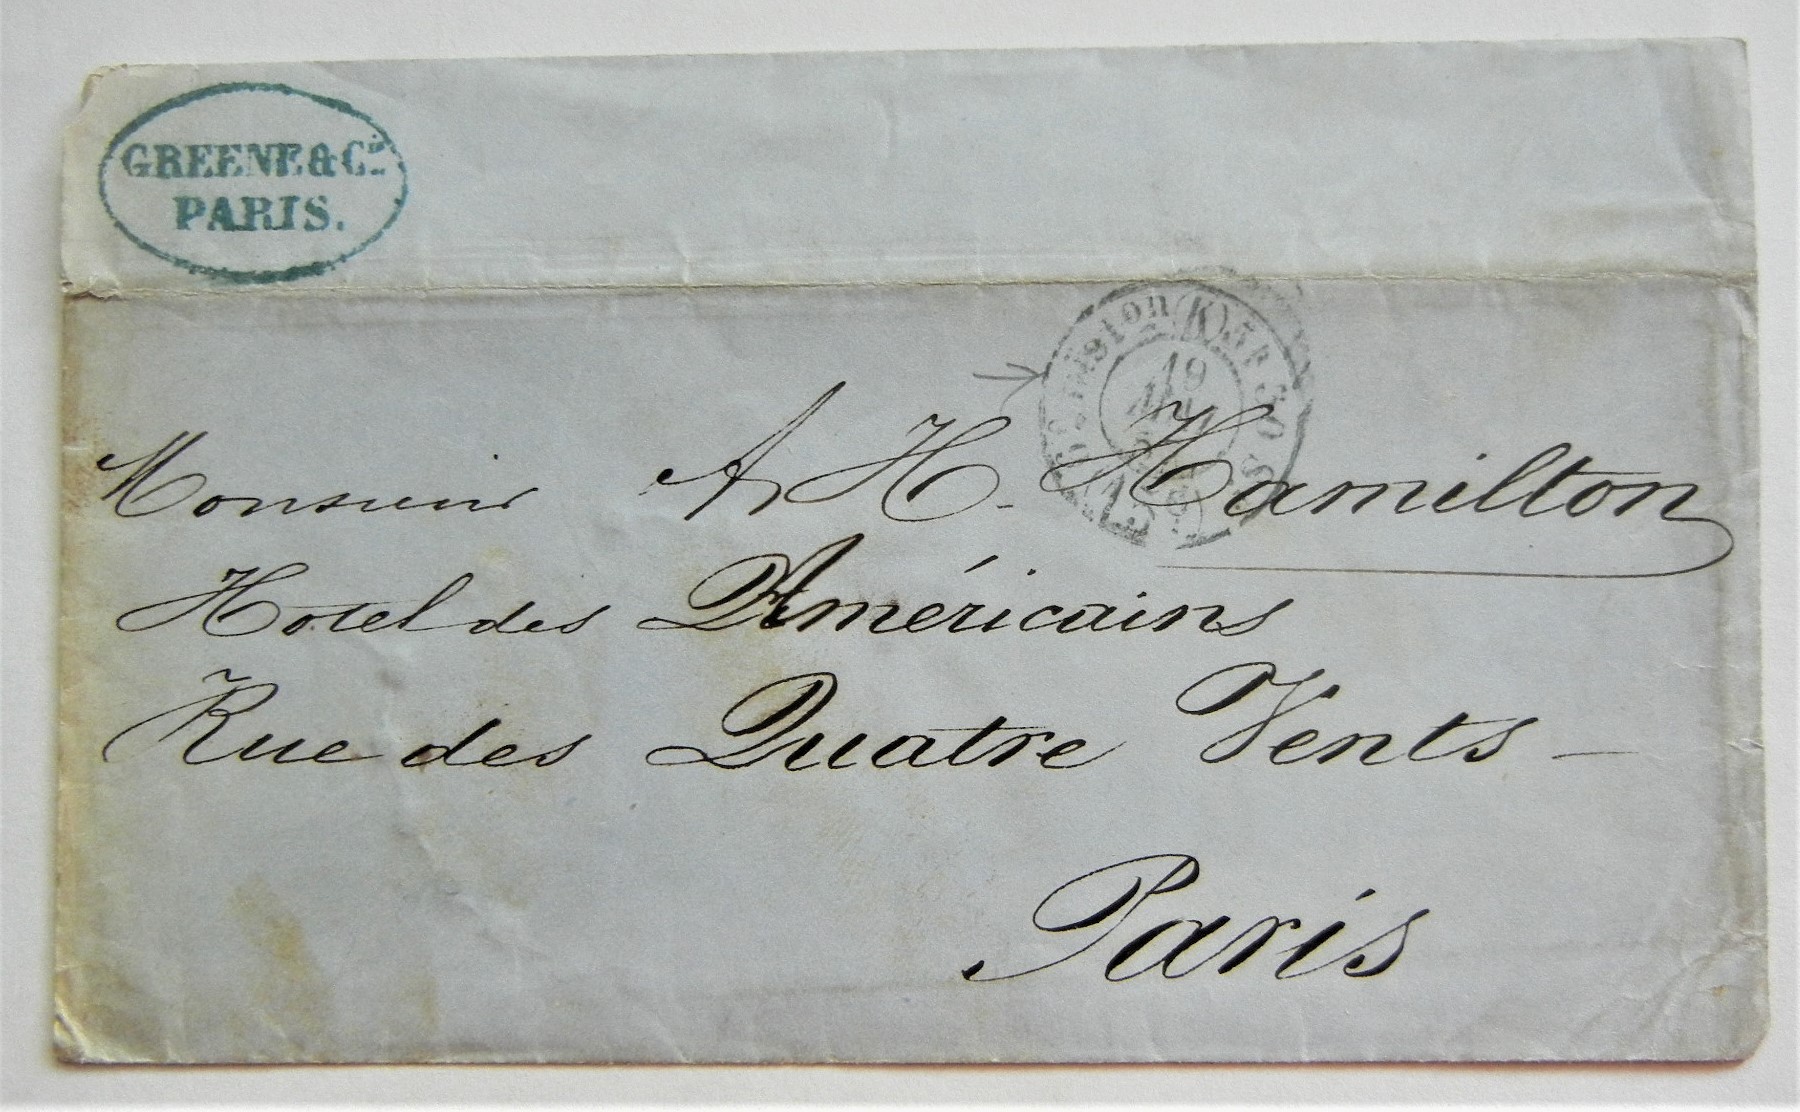 GREENE & Co.
PARIS.
(K)
19
15
Monsieur A H. Hamilton
Hotel des Américains
Rue des Quatre Vents –
Paris